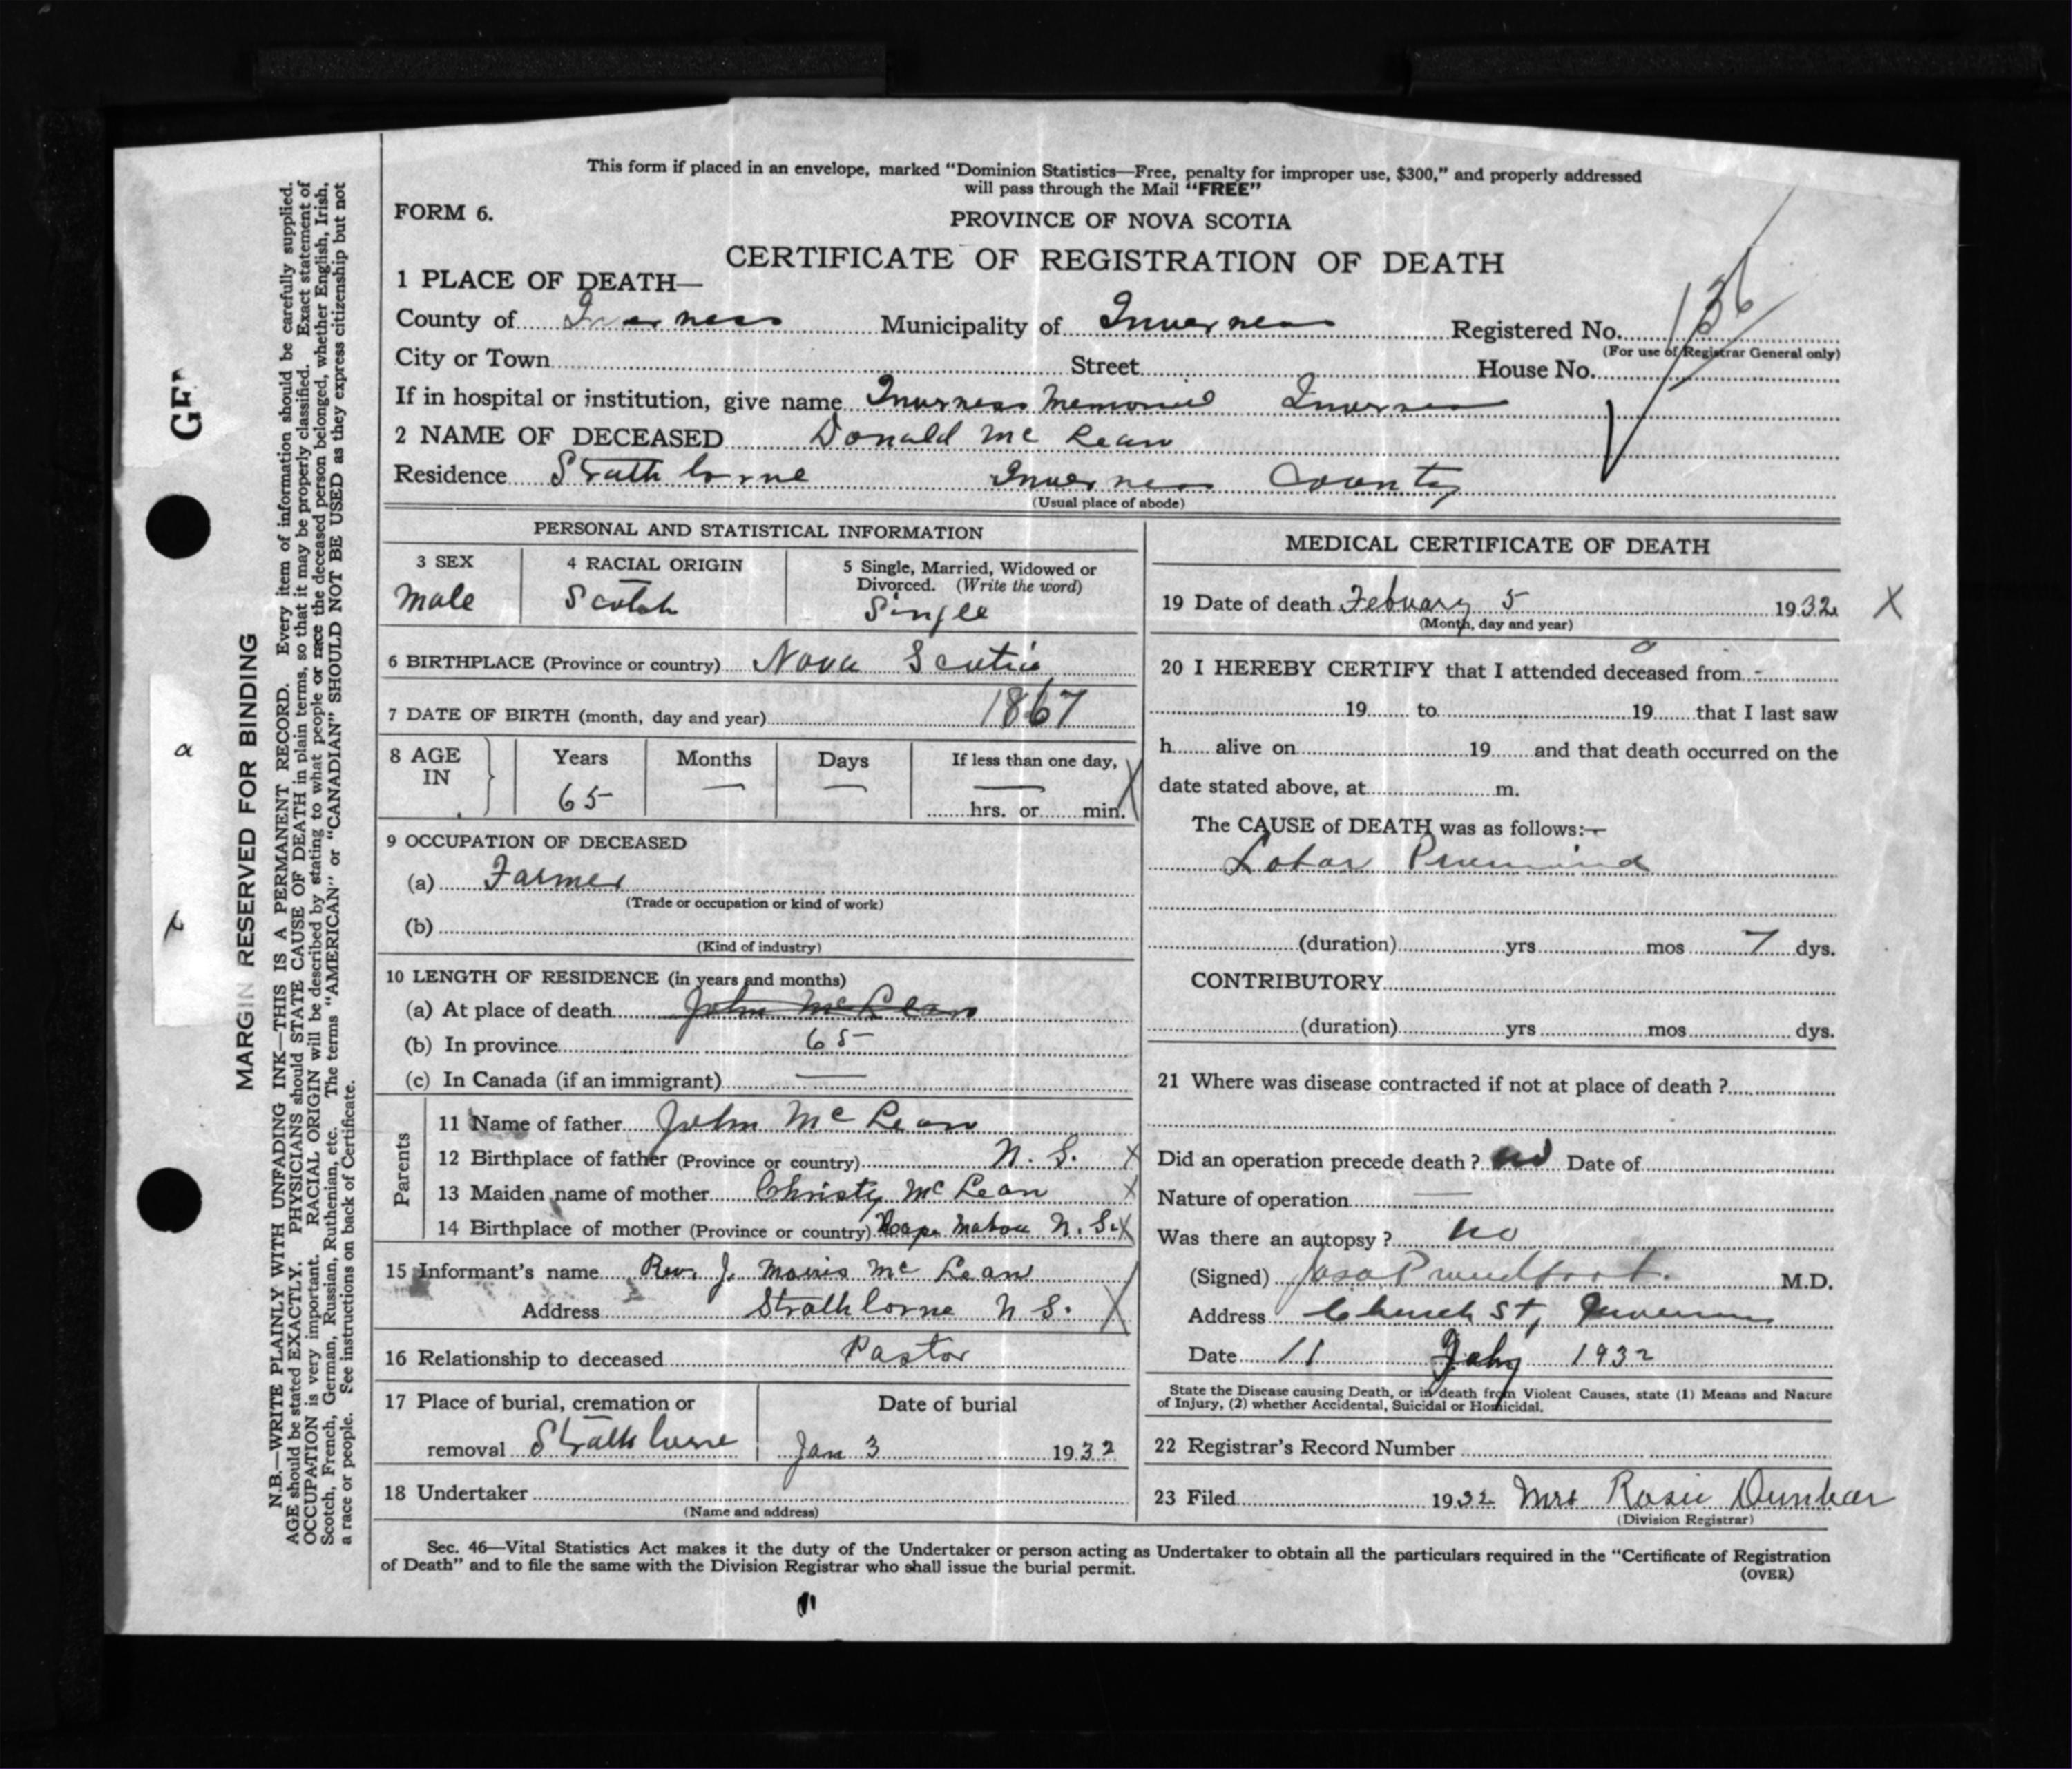 This form if placed in an envelope, marked "Dominion Statistics—Free, penalty for improper use, $300," and properly addressed
will pass through the Mail "FREE"
FORM 6.
PROVINCE OF NOVA SCOTIA
CERTIFICATE OF REGISTRATION OF DEATH
1 PLACE OF DEATH—
County of Inverness Municipality of Inverness Registered No. 136
(For use of Registrar General only)
City or Town Street House No.
If in hospital or institution, give name Inverness Memorial Inverness
2 NAME OF DECEASED Donald Mc Lean
Residence Strathlorne Inverness County
(Usual place of abode)
PERSONAL AND STATISTICAL INFORMATION
3 SEX
Male
4 RACIAL ORIGIN
Scotch
5 Single, Married, Widowed or
Divorced. (Write the word)
Single
6 BIRTHPLACE (Province or country) Nova Scotia
7 DATE OF BIRTH (month, day and year) 1867
8 AGE
IN
Years
65
Months
—
Days
—
If less than one day,
—
hrs. or min.
9 OCCUPATION OF DECEASED
(a) Farmer
(Trade or occupation or kind of work)
(b)
(Kind of industry)
10 LENGTH OF RESIDENCE (in years and months)
(a) At place of death John McLean
(b) In province 65
(c) In Canada (if an immigrant) —
Parents
11 Name of father John Mc Lean
12 Birthplace of father (Province or country) N. S. X
13 Maiden name of mother Christy Mc Lean X
14 Birthplace of mother (Province or country) Cape Mabou N. S. X
15 Informant's name Rev. J. Mc Lean
Address Strathlorne N S. X
16 Relationship to deceased Pastor
17 Place of burial, cremation or
removal Strathlorne
Date of burial
Jan 3 1932
18 Undertaker
(Name and address)
MEDICAL CERTIFICATE OF DEATH
19 Date of death Febuary 5 1932 X
(Month, day and year)
20 I HEREBY CERTIFY that I attended deceased from
19 to 19 that I last saw
h alive on 19 and that death occurred on the
date stated above, at m.
The CAUSE of DEATH was as follows:—
Lobar Pneumonia
(duration) yrs mos 7 dys.
CONTRIBUTORY
(duration) yrs mos dys.
21 Where was disease contracted if not at place of death ?
Did an operation precede death ? no Date of
Nature of operation —
Was there an autopsy ? no
(Signed) Proudfoot. M.D.
Address Church St, Inverness
Date 11 Feby 1932
State the Disease causing Death, or in death from Violent Causes, state (1) Means and Nature
of Injury, (2) whether Accidental, Suicidal or Homicidal.
22 Registrar's Record Number
23 Filed 1932 Mrs Rosie Dunbar
(Division Registrar)
Sec. 46—Vital Statistics Act makes it the duty of the Undertaker or person acting as Undertaker to obtain all the particulars required in the "Certificate of Registration
of Death" and to file the same with the Division Registrar who shall issue the burial permit.
(OVER)
MARGIN RESERVED FOR BINDING
N.B.—WRITE PLAINLY WITH UNFADING INK—THIS IS A PERMANENT RECORD. Every item of information should be carefully supplied.
AGE should be stated EXACTLY. PHYSICIANS should STATE CAUSE OF DEATH in plain terms, so that it may be properly classified. Exact statement of
OCCUPATION is very important. RACIAL ORIGIN will be described by stating to what people or race the deceased person belonged, whether English, Irish,
Scotch, French, German, Russian, Ruthenian, etc. The terms "AMERICAN" or "CANADIAN" SHOULD NOT BE USED as they express citizenship but not
a race or people. See instructions on back of Certificate.